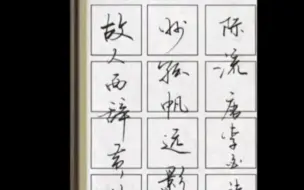 故人西辞黄
州孤帆远影
际流唐李白